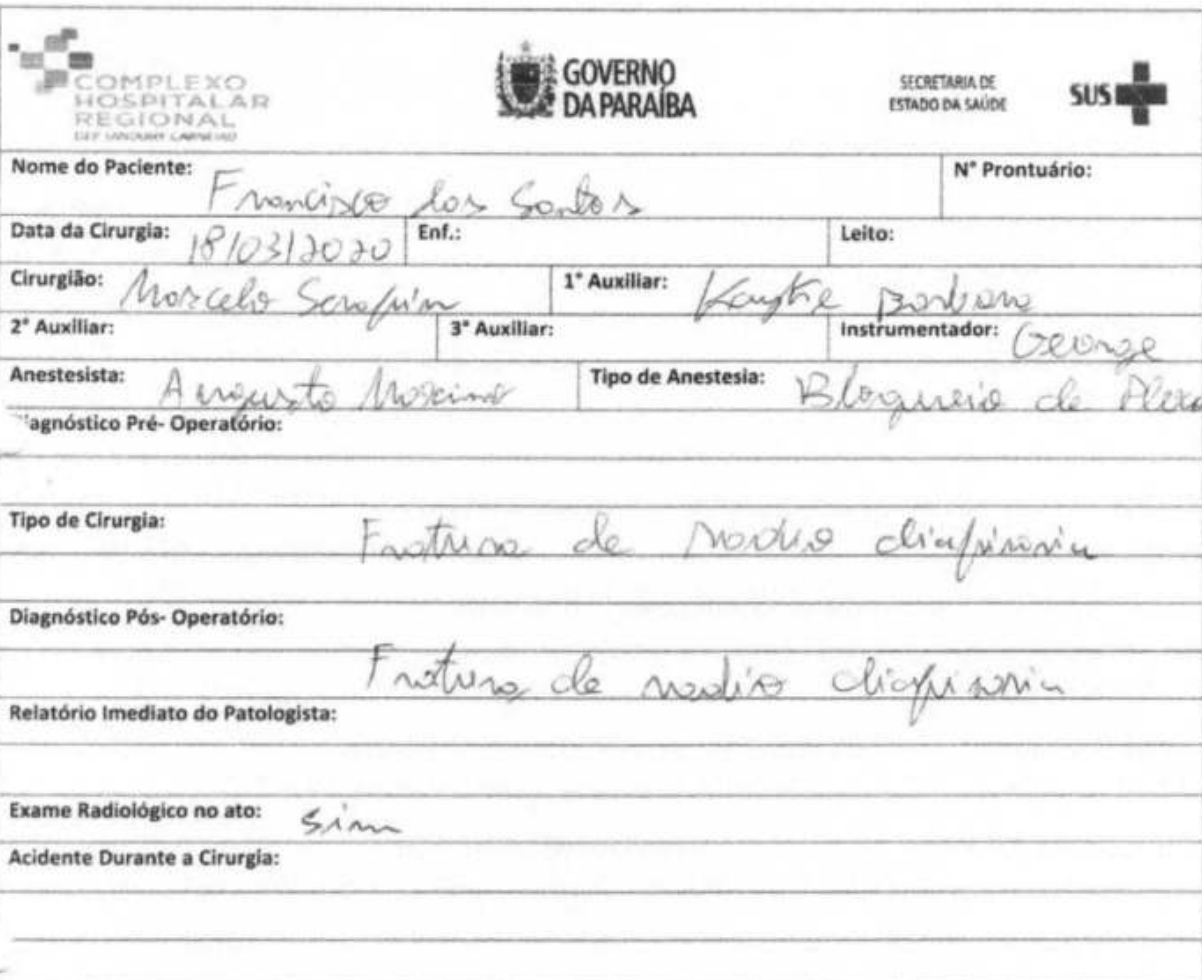 COMPLEXO
HOSPITALAR
REGIONAL
GOVERNO
DA PARAÍBA
SECRETARIA DE
ESTADO DA SAÚDE
SUS
Nome do Paciente: Francisco dos Santos
N° Prontuário:
Data da Cirurgia: 18/03/2020 Enf.: Leito:
Cirurgião: Marcelo Serafim 1° Auxiliar: Barbara
2° Auxiliar: 3° Auxiliar: Instrumentador: George
Anestesista: Augusto Tipo de Anestesia: Bloqueio de
agnóstico Pré- Operatório:
Tipo de Cirurgia: Fratura de radio
Diagnóstico Pós- Operatório:
Fratura de radio
Relatório Imediato do Patologista:
Exame Radiológico no ato: sim
Acidente Durante a Cirurgia: